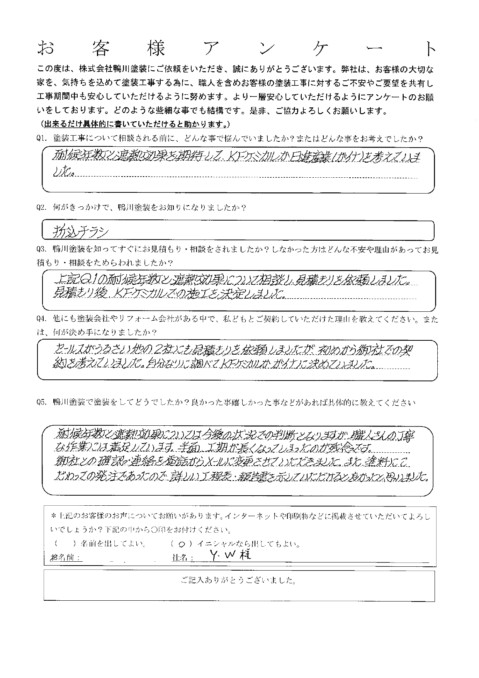 お客様アンケート
この度は、株式会社鴨川塗装にご依頼をいただき、誠にありがとうございます。弊社は、お客様の大切な
家を、気持ちを込めて塗装工事する為に、職人を含めお客様の塗装工事に対するご不安やご要望を共有し
工事期間中も安心していただけるように努めます。より一層安心していただけるようにアンケートのお願
いをしております。どのような些細な事でも結構です。是非、ご協力よろしくお願いします。
(出来るだけ具体的に書いていただけると助かります。)
Q1. 塗装工事について相談される前に、どんな事で悩んでいましたか?またはどんな事をお考えでしたか?
耐候年数と遮熱効果を期待して、KFケミカルか日進産業(ガイナ)を考えていま
した。
Q2. 何がきっかけで、鴨川塗装をお知りになりましたか?
折込チラシ
Q3. 鴨川塗装を知ってすぐにお見積もり・相談をされましたか?しなかった方はどんな不安や理由があってお見
積もり・相談をためらわれましたか?
上記Q1の耐候年数と遮熱効果について相談し、見積もりを依頼しました。
見積もり後、KFケミカルでの施工を決定しました。
Q4. 他にも塗装会社やリフォーム会社がある中で、私どもとご契約していただけた理由を教えてください。また
は、何が決め手になりましたか?
セールスがうるさい他の2社にも見積もりを依頼しましたが、初めから御社での契
約を考えていました。自分なりに調べてKFケミカルかガイナに決めていました。
Q5. 鴨川塗装で塗装をしてどうでしたか?良かった事嬉しかった事などがあれば具体的に教えてください
耐候年数と遮熱効果については今後の状況での判断となりますが、職人さんの丁寧
な作業には満足しています。半面、工期が長くなってしまったのが残念です。
御社との確認や連絡を電話からメールに変更させていただきました。また、塗料にこ
だわっての発注であったので、詳しい工程表・を示していただけると良かったと思いました。
*上記のお客様のお声についてお願いがあります。インターネットや印刷物などに掲載させていただいてよろし
いでしょうか?下記の中から○印をお付けください。
( )名前を出してよい。 (○)イニシャルなら出してもよい。
業者様: 氏名: Y.W様
ご記入ありがとうございました。